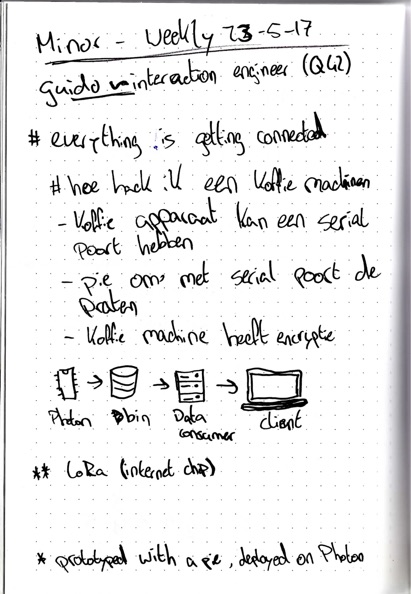 Minor - Weekly 23-5-17
Guido interaction engineer (Q42)
# everything is getting connected
# hoe hack ik een koffie machinen
- Koffie apparaat kan een serial
poort hebben
- pie om met serial poort de
praten
- Koffie machine heeft encryptie
Photon
bin
Data
consumer
client
** LoRa (internet chip)
* prototyped with a pie, deployed on Photon